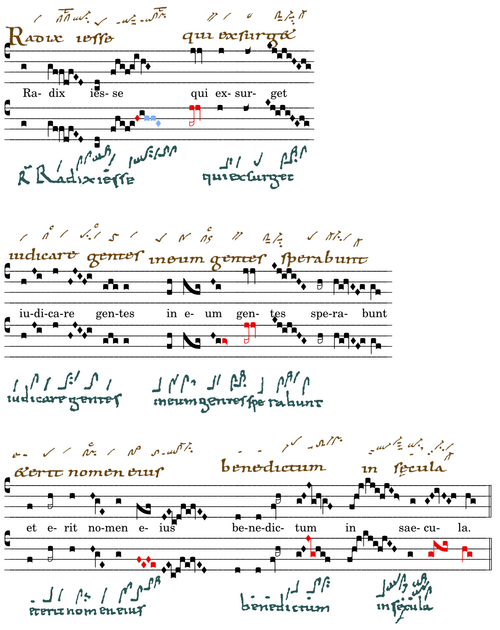 Radix iesse qui exsurget
Ra- dix iès- se qui ex- sur- get
R Radix iesse qui exsurget
iudicare gentes in eum gentes sperabunt
iu-di-ca-re gen-tes in e- um gen- tes spe-ra- bunt
iudicare gentes in eum gentes sperabunt
& erit nomen eius benedictum in secula
et e- rit no-men e- ius be-ne-dic- tum in sae-cu- la.
et erit nomen eius benedictum in secula